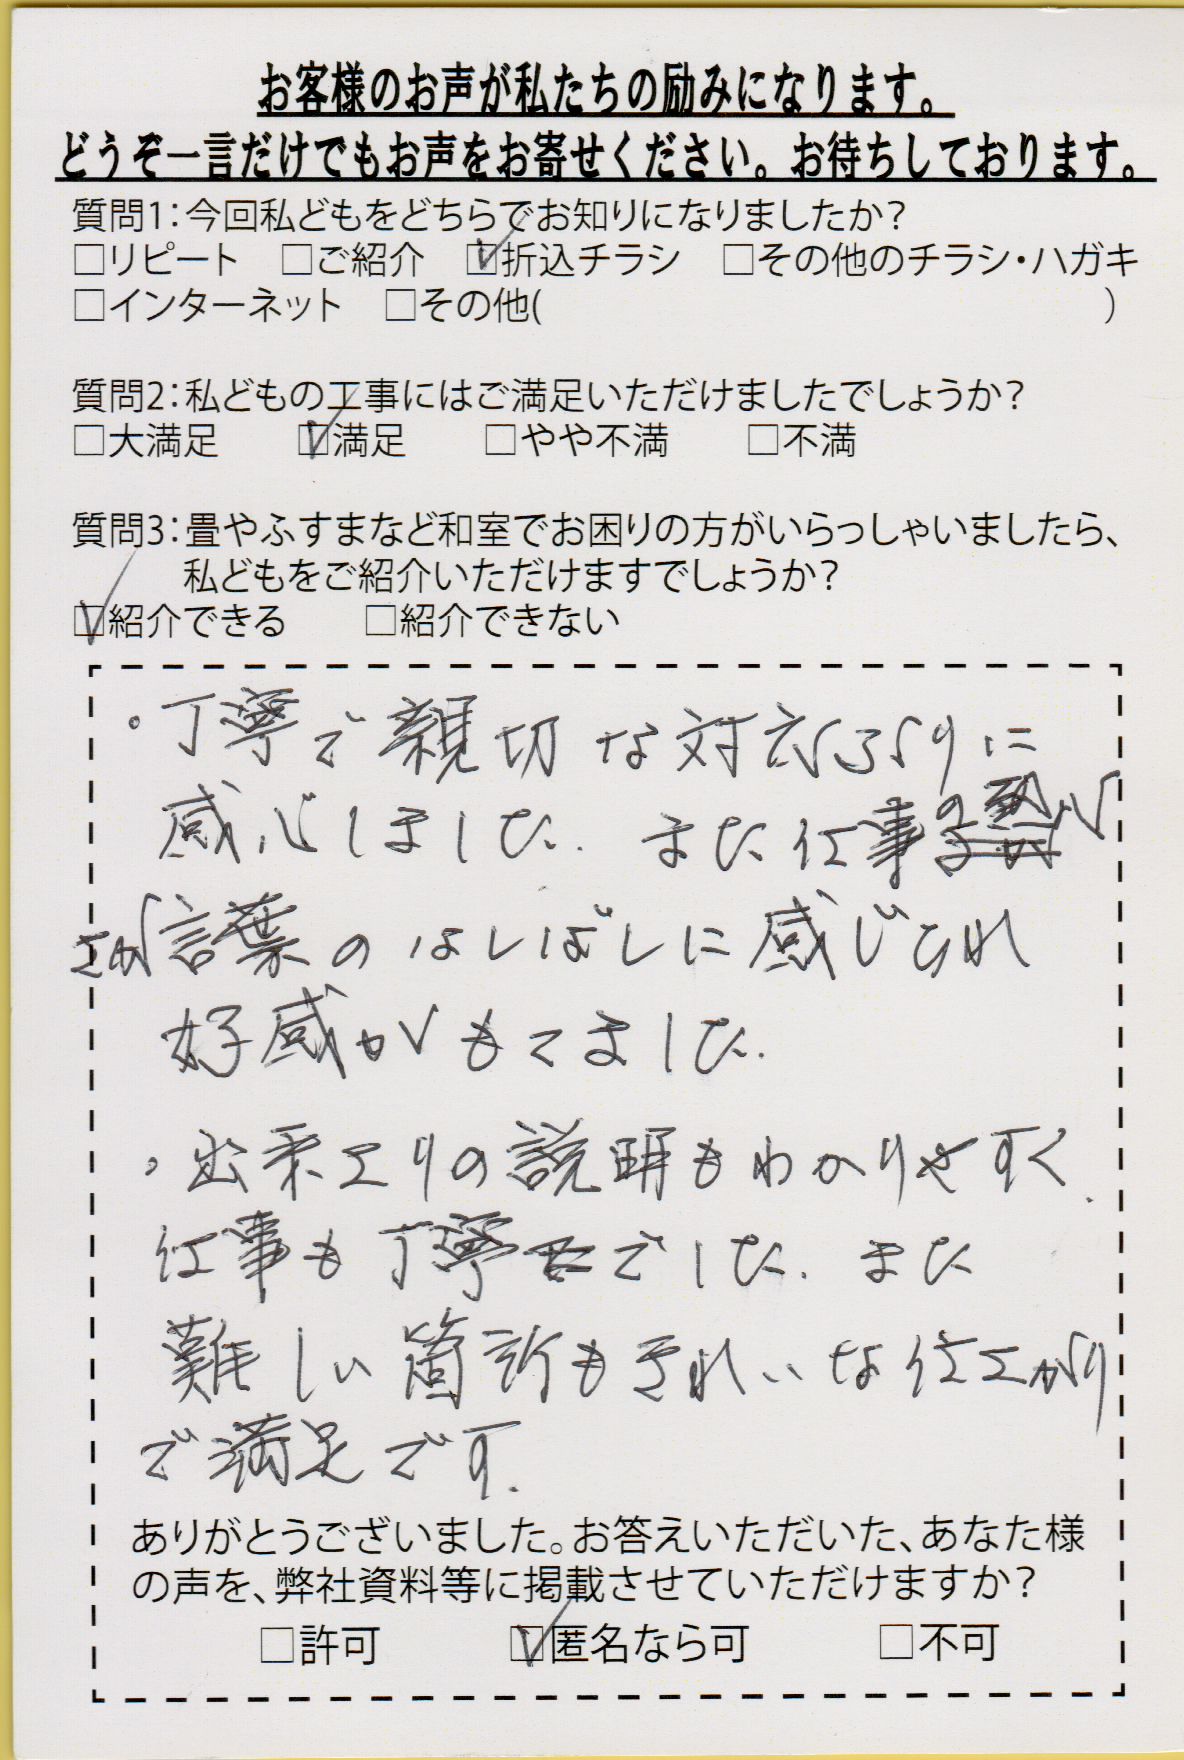 お客様のお声が私たちの励みになります。
どうぞ一言だけでもお声をお寄せください。お待ちしております。
質問1：今回私どもをどちらでお知りになりましたか？
□リピート　□ご紹介　☑折込チラシ　□その他のチラシ・ハガキ
□インターネット　□その他(　　　)
質問2：私どもの工事にはご満足いただけましたでしょうか？
□大満足　☑満足　□やや不満　□不満
質問3：畳やふすまなど和室でお困りの方がいらっしゃいましたら、
私どもをご紹介いただけますでしょうか？
☑紹介できる　□紹介できない
・丁寧で親切な対応ぶりに
感心しました。また仕事の熱心
さが言葉のはしばしに感じられ
好感がもてました。
・出来上りの説明もわかりやすく、
仕事も丁寧でした。また
難しい箇所もきれいな仕上がり
で満足です。
ありがとうございました。お答えいただいた、あなた様
の声を、弊社資料等に掲載させていただけますか？
□許可　☑匿名なら可　□不可